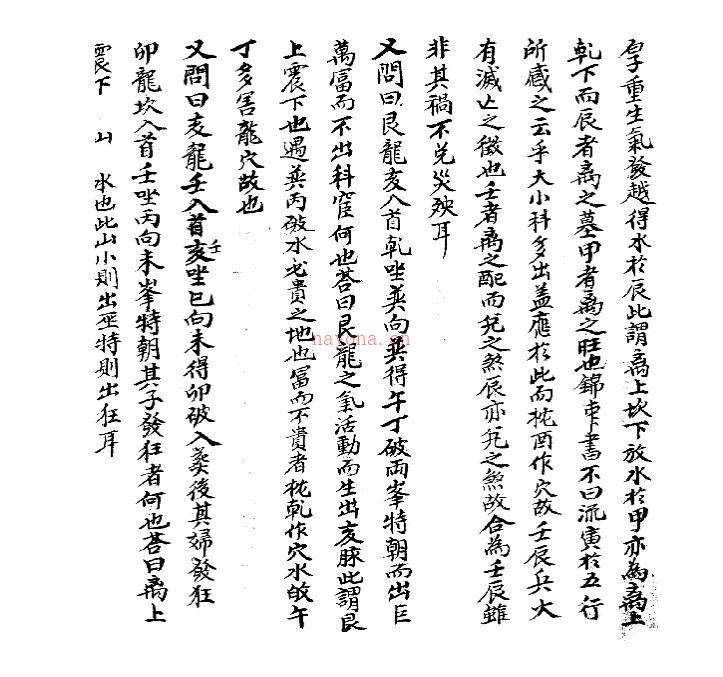 厚重生氣發越得水於辰此謂离上坎下放水於甲亦為离上
乹下而辰者离之墓甲者离之旺也錦囊書不曰流寅於五行
所感之云乎大小科多出盖應於此而枕酉作穴故壬辰兵火
有滅亡之徵也壬者离之配而兌之煞辰亦兌之煞故合為壬辰雖
非其禍不兌災殃耳
又問曰艮龍亥入首乹坐巽向巽得午丁破両峯特朝而出巨
萬富而不出科宦何也荅曰艮龍之氣活動而生出亥脉此謂艮
上震下也遇巽丙破水尤貴之地也冨而不貴者枕乹作穴水破午
丁多害龍穴故也
又問曰亥龍壬入首亥壬坐巳向未得卯破入葬後其婦發狂
卯龍坎入首壬坐丙向未峯特朝其子發狂者何也荅曰离上
震下 山 水也此山小則出巫特則出狂耳
hayona.cn